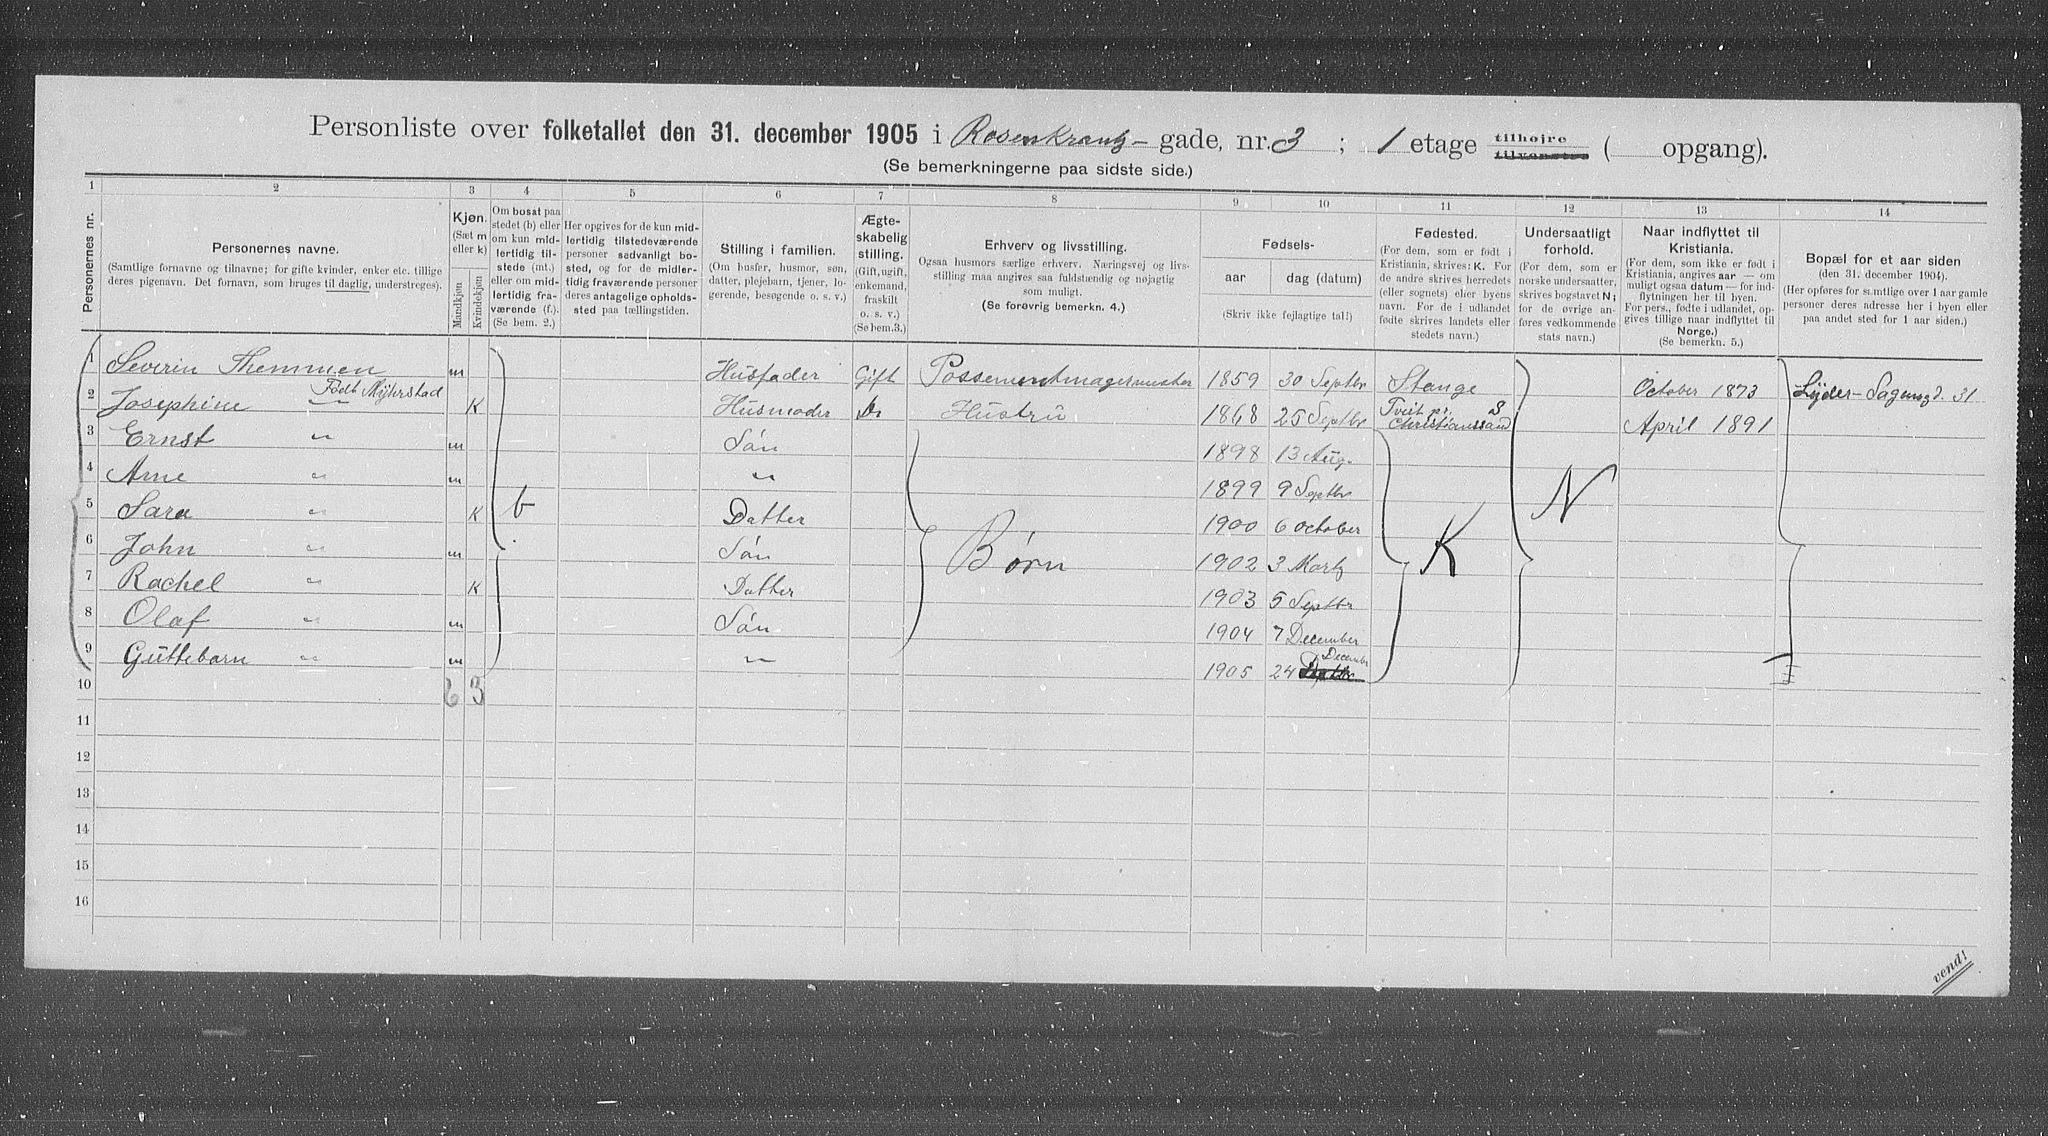 Personliste over folketallet den 31. december 1905 i Rosenkrantz- gade, nr. 3 ; 1 etage tilhøjre tilvenstre ( opgang).
(Se bemerkningerne paa sidste side.)
1 2 3 4 5 6 7 8 9 10 11 12 13 14
Personernes nr.
Personernes navne.
(Samtlige fornavne og tilnavne; for gifte kvinder, enker etc. tillige
deres pigenavn. Det fornavn, som bruges til daglig, understreges).
Kjøn.
(Sæt m
eller k)
Mandkjøn
Kvindekjøn
Om bosat paa
stedet (b) eller
om kun mid-
lertidig til-
stede (mt.)
eller om mid-
lertidig fra-
værende (f.).
(Se bem. 2.)
Her opgives for de kun mid-
lertidig tilstedeværende
personer sædvanligt bo-
sted, og for de midler-
tidig fraværende personer
deres antagelige opholds-
sted paa tællingstiden.
Stilling i familien.
(Om husfer, husmor, søn,
datter, plejebarn, tjener, lo-
gerende, besøgende o. s. v.)
Ægte-
skabelig
stilling.
(Gift, ugift,
enkemand,
fraskilt
o. s. v.)
(Se bem.3.)
Erhverv og livsstilling.
Ogsaa husmors særlige erhverv. Næringsvej og livs-
stilling maa angives saa fuldstændig og nøjagtig
som muligt.
(Se forøvrig bemerkn. 4.)
Fødsels-
aar dag (datum)
(Skriv ikke fejlagtige tal!)
Fødested.
(For dem, som er født i
Kristiania, skrives: K. For
de andre skrives herredets
(eller sognets) eller byens
navn. For de i udlandet
fødte skrives landets eller
stedets navn.)
Undersaatligt
forhold.
(For dem, som er
norske undersaatter,
skrives bogstavet N;
for de øvrige an-
føres vedkommende
stats navn.)
Naar indflyttet til
Kristiania.
(For dem, som ikke er født i
Kristiania, angives aar — om
muligt ogsaa datum — for ind-
flytningen her til byen.
For pers., fødte i udlandet, op-
gives tillige naar indflyttet til
Norge.)
(Se bemerkn. 5.)
Bopæl for et aar siden
(den 31. december 1904).
(Her opføres for samtlige over 1 aar gamle
personer deres adresse her i byen eller
paa andet sted for 1 aar siden.)
1 Severin Themmen m Husfader Gift Possementmagermester 1859 30 Septbr Stange October 1873 Lyder-Sagensgd. 31
Født Myhrstad
2 Josephine " K Husmoder Do Hustru 1868 25 Septbr Tveit pr. Christianssand S April 1891
3 Ernst " m Søn 1898 13 Aug.
4 Arne " m " 1899 9 Septbr
5 Sara " K b Datter 1900 6 October N
6 John " m Søn Børn 1902 3 Marts K
7 Rachel " K Datter 1903 5 Septbr
8 Olaf " m Søn 1904 7 December
9 Guttebarn " m " 1905 24 December
10 6 3
11
12
13
14
15
16
vend!